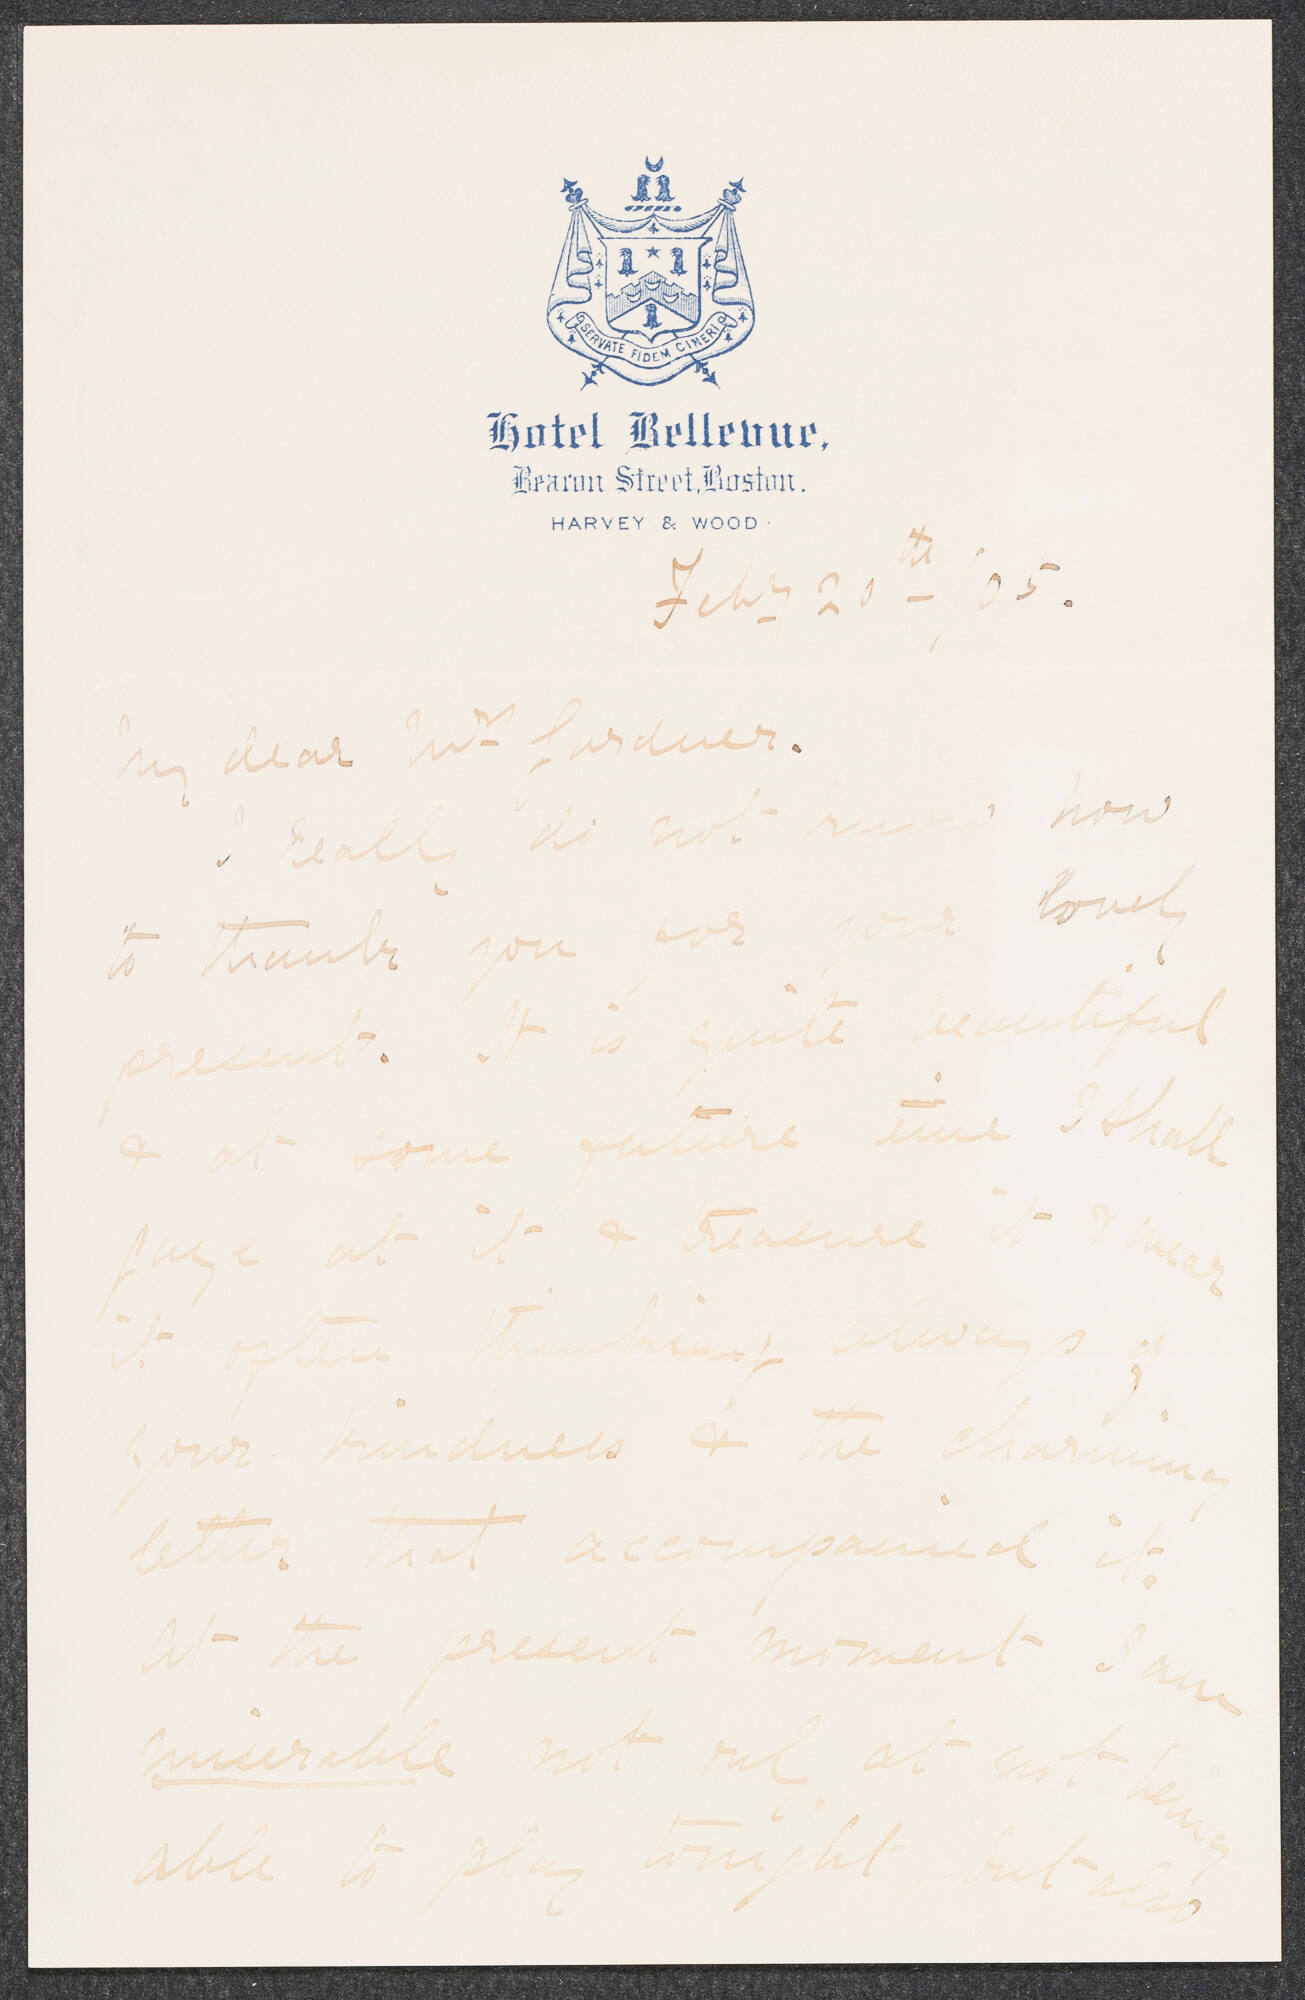 SERVATE FIDEM CINERI
Hotel Bellevue,
Beacon Street, Boston.
HARVEY & WOOD.
Febry 20th /05.
My dear Mrs Gardner.
I really do not know how
to thank you for your lovely
present. It is quite beautiful
& at some future time I shall
gaze at it & treasure it & wear
it often thinking always of
your kindness & the charming
letter that accompanied it.
At the present moment, I am
miserable not only at not being
able to play tonight, but also